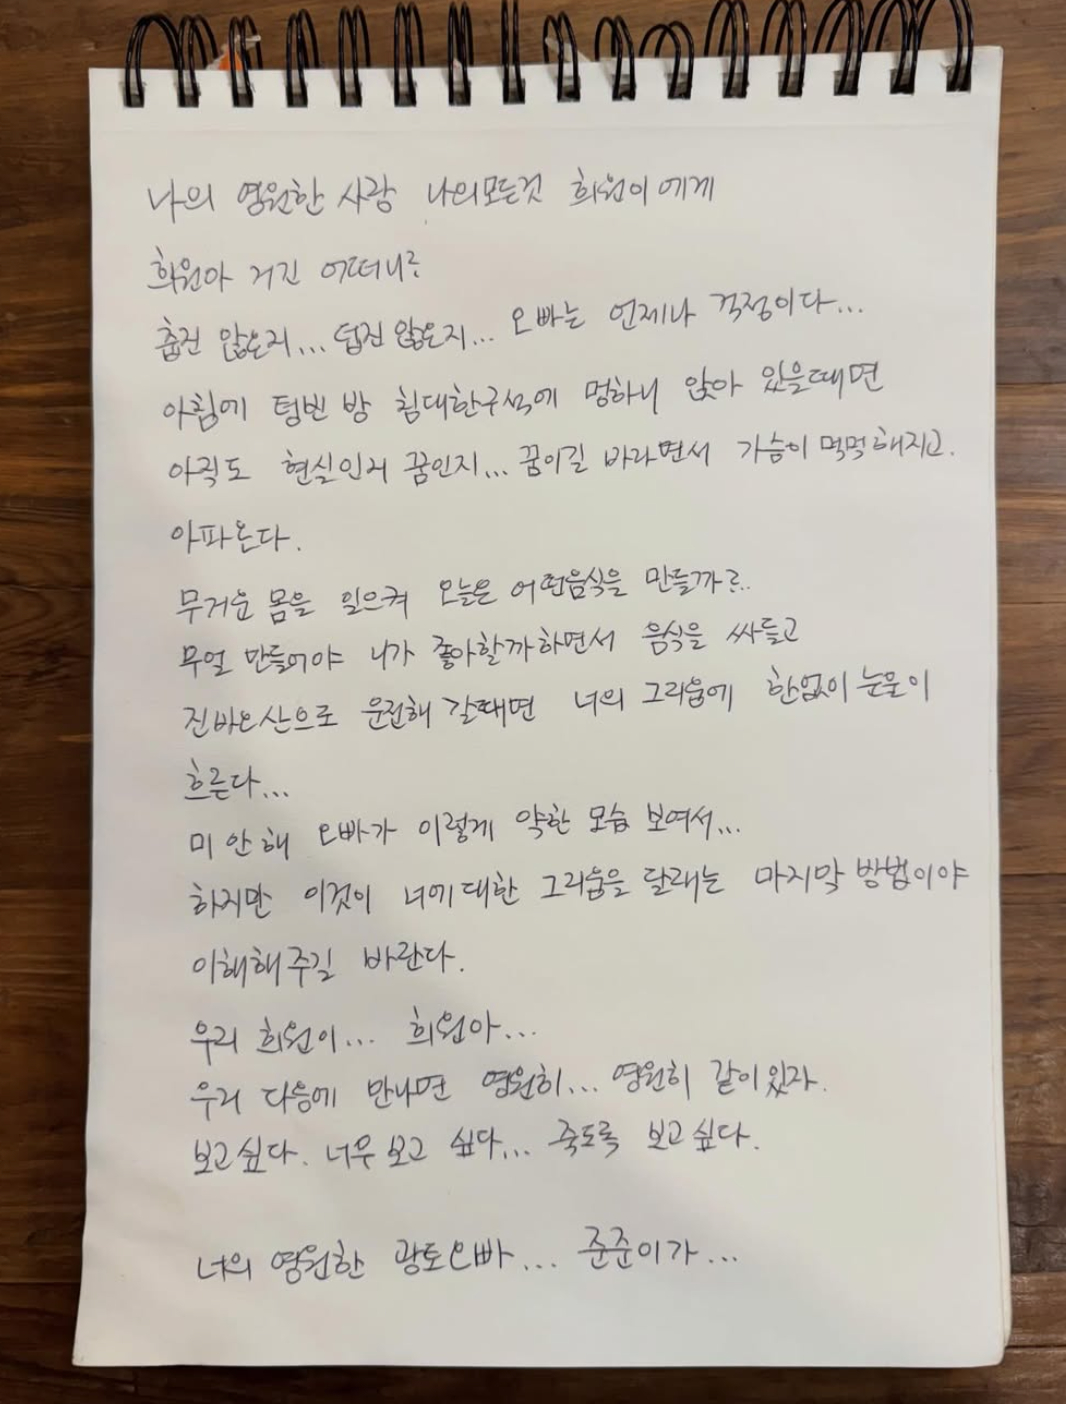 나의 영원한 사랑 나의모든것 희원이에게
희원아 거긴 어떠니?
춥진 않은지... 덥진 않은지... 오빠는 언제나 걱정이다...
아침에 텅빈 방 침대한구석에 멍하니 앉아 있을때면
아직도 현실인지 꿈인지... 꿈이길 바라면서 가슴이 먹먹해지고.
아파온다.
무거운 몸을 일으켜 오늘은 어떤음식을 만들까?..
무얼 만들어야 니가 좋아할까하면서 음식을 싸들고
진바온산으로 운전해 갈때면 너의 그리움에 한없이 눈물이
흐른다...
미안해 오빠가 이렇게 약한 모습 보여서...
하지만 이것이 너에대한 그리움을 달래는 마지막 방법이야
이해해주길 바란다.
우리 희원이... 희원아...
우리 다음에 만나면 영원히... 영원히 같이있자.
보고싶다. 너무 보고 싶다... 죽도록 보고싶다.
너의 영원한 광토오빠... 준준이가...